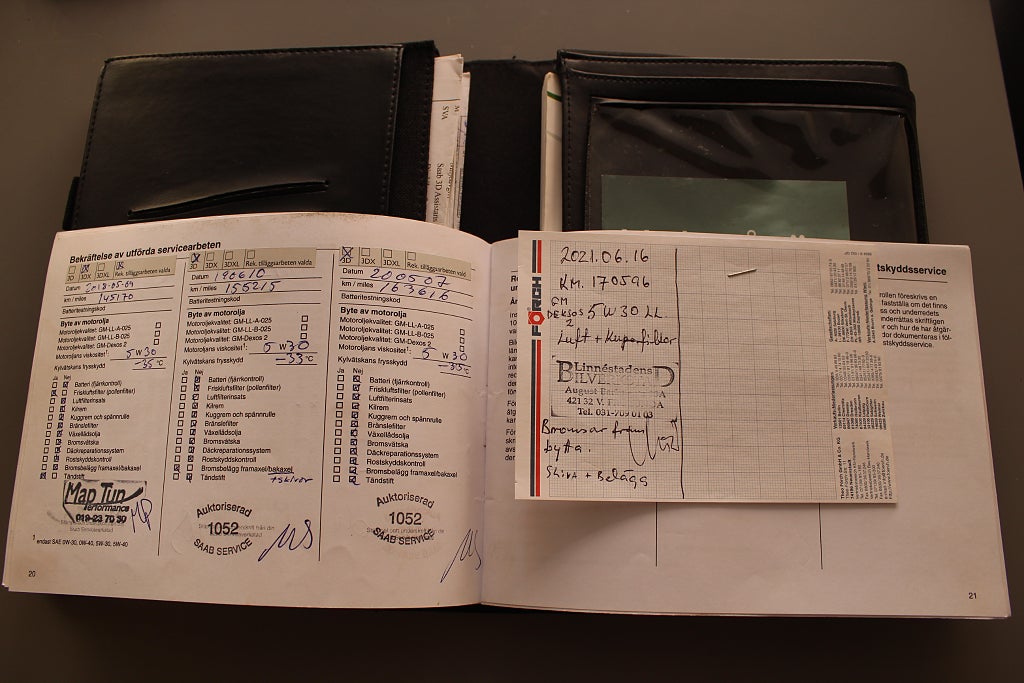 M
SVA
Saab 3D Assistans
Bekräftelse av utförda servicearbeten
3D 3DX 3DXL Rek. tilläggsarbeten valda
Datum 2018-05-09
km / miles 145170
Batteritestningskod
Byte av motorolja
Motoroljekvalitet: GM-LL-A-025
Motoroljekvalitet: GM-LL-B-025
Motoroljekvalitet: GM-Dexos 2
Motoroljans viskositet¹: 5W30
Kylvätskans frysskydd -35 °C
Ja Nej
Batteri (fjärrkontroll)
Friskluftsfilter (pollenfilter)
Luftfilterinsats
Kilrem
Kuggrem och spännrulle
Bränslefilter
Växellådsolja
Bromsvätska
Däckreparationssystem
Rostskyddskontroll
Bromsbelägg framaxel/bakaxel
Tändstift
MapTun
Performance
019-23 70 50
MP
¹ endast SAE 0W-30, 0W-40, 5W-30, 5W-40
20
3D 3DX 3DXL Rek. tilläggsarbeten valda
Datum 190610
km / miles 155215
Batteritestningskod
Byte av motorolja
Motoroljekvalitet: GM-LL-A-025
Motoroljekvalitet: GM-LL-B-025
Motoroljekvalitet: GM-Dexos 2
Motoroljans viskositet¹: 5W30
Kylvätskans frysskydd -33 °C
Ja Nej
Batteri (fjärrkontroll)
Friskluftsfilter (pollenfilter)
Luftfilterinsats
Kilrem
Kuggrem och spännrulle
Bränslefilter
Växellådsolja
Bromsvätska
Däckreparationssystem
Rostskyddskontroll
Bromsbelägg framaxel/bakaxel
Tändstift +skivor
Auktoriserad
1052
SAAB SERVICE
3D 3DX 3DXL Rek. tilläggsarbeten vald
Datum 200507
km / miles 163616
Batteritestningskod
Byte av motorolja
Motoroljekvalitet: GM-LL-A-025
Motoroljekvalitet: GM-LL-B-025
Motoroljekvalitet: GM-Dexos 2
Motoroljans viskositet¹: 5W30
Kylvätskans frysskydd -35 °C
Ja Nej
Batteri (fjärrkontroll)
Friskluftsfilter (pollenfilter)
Luftfilterinsats
Kilrem
Kuggrem och spännrulle
Bränslefilter
Växellådsolja
Bromsvätska
Däckreparationssystem
Rostskyddskontroll
Bromsbelägg framaxel/bakaxel
Tändstift
Auktoriserad
1052
SAAB SERVICE
FÖRCH
2021.06.16
KM. 170596
GM
DEXSOS 5W30 LL
2
Luft + Kupefilter
Linnéstadens
August
421 32 V.
Tel. 031-709 01 03
Bromsar fram
bytta.
Skiva + Belägg
tskyddsservice
rollen föreskrivs en
fastställa om det finns
s och underredets
inderrättas skriftligen
r och hur de har åtgär-
dor dokumenteras i föl-
stskyddsservice.
21